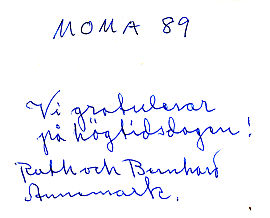 MOMA 89
Vi gratulerar
på högtidsdagen!
Ruth och Bernhard
Annemark.